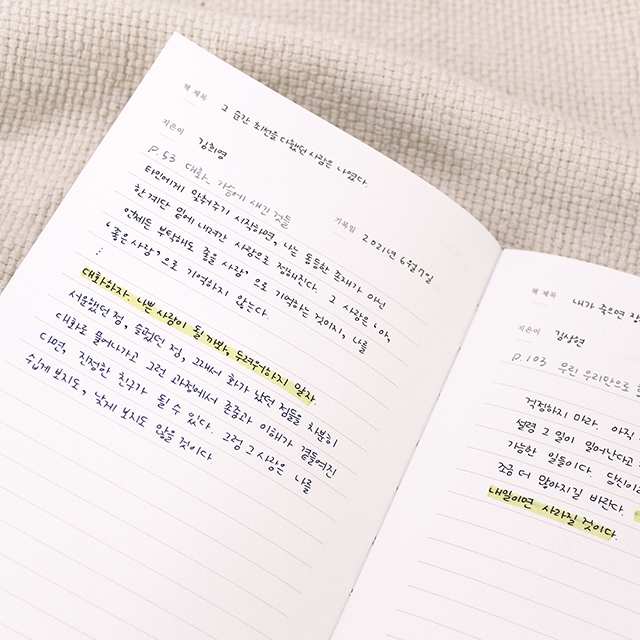 책 제목 그 순간 최선을 다했던 사람은 나였다.
지은이 김희영
기록일 2021년 6월 7일
p.53 대화. 가슴에 새긴 것들
타인에게 맞춰주기 시작하면, 나는 동등한 존재가 아닌
한 계단 밑에 내려간 사람으로 정해진다. 그 사람은 '아,
언제든 부탁해도 좋을 사람' 으로 기억하는 것이지, 나를
'좋은 사람' 으로 기억하지 않는다.
⋮
대화하자. 나쁜 사람이 될 가봐, 두려워하지 말자.
서운했던 점, 슬펐던 점, 그래서 화가 났던 점들을 차분히
대화로 풀어나가고 그런 과정에서 존중과 이해가 곁들여진
다면, 진정한 친구가 될 수 있다. 그럼 그 사람은 나를
쉽게 보지도, 낮게 보지도 않을 것이다.
책 제목 내가 죽으면 장
지은이 김상현
p.103 우린 우리만으로
걱정하지 마라. 아직
설령 그 일이 일어난다고
가능한 일들이다. 당신이
조금 더 많아지길 바란다.
내일이면 사라질 것이다.